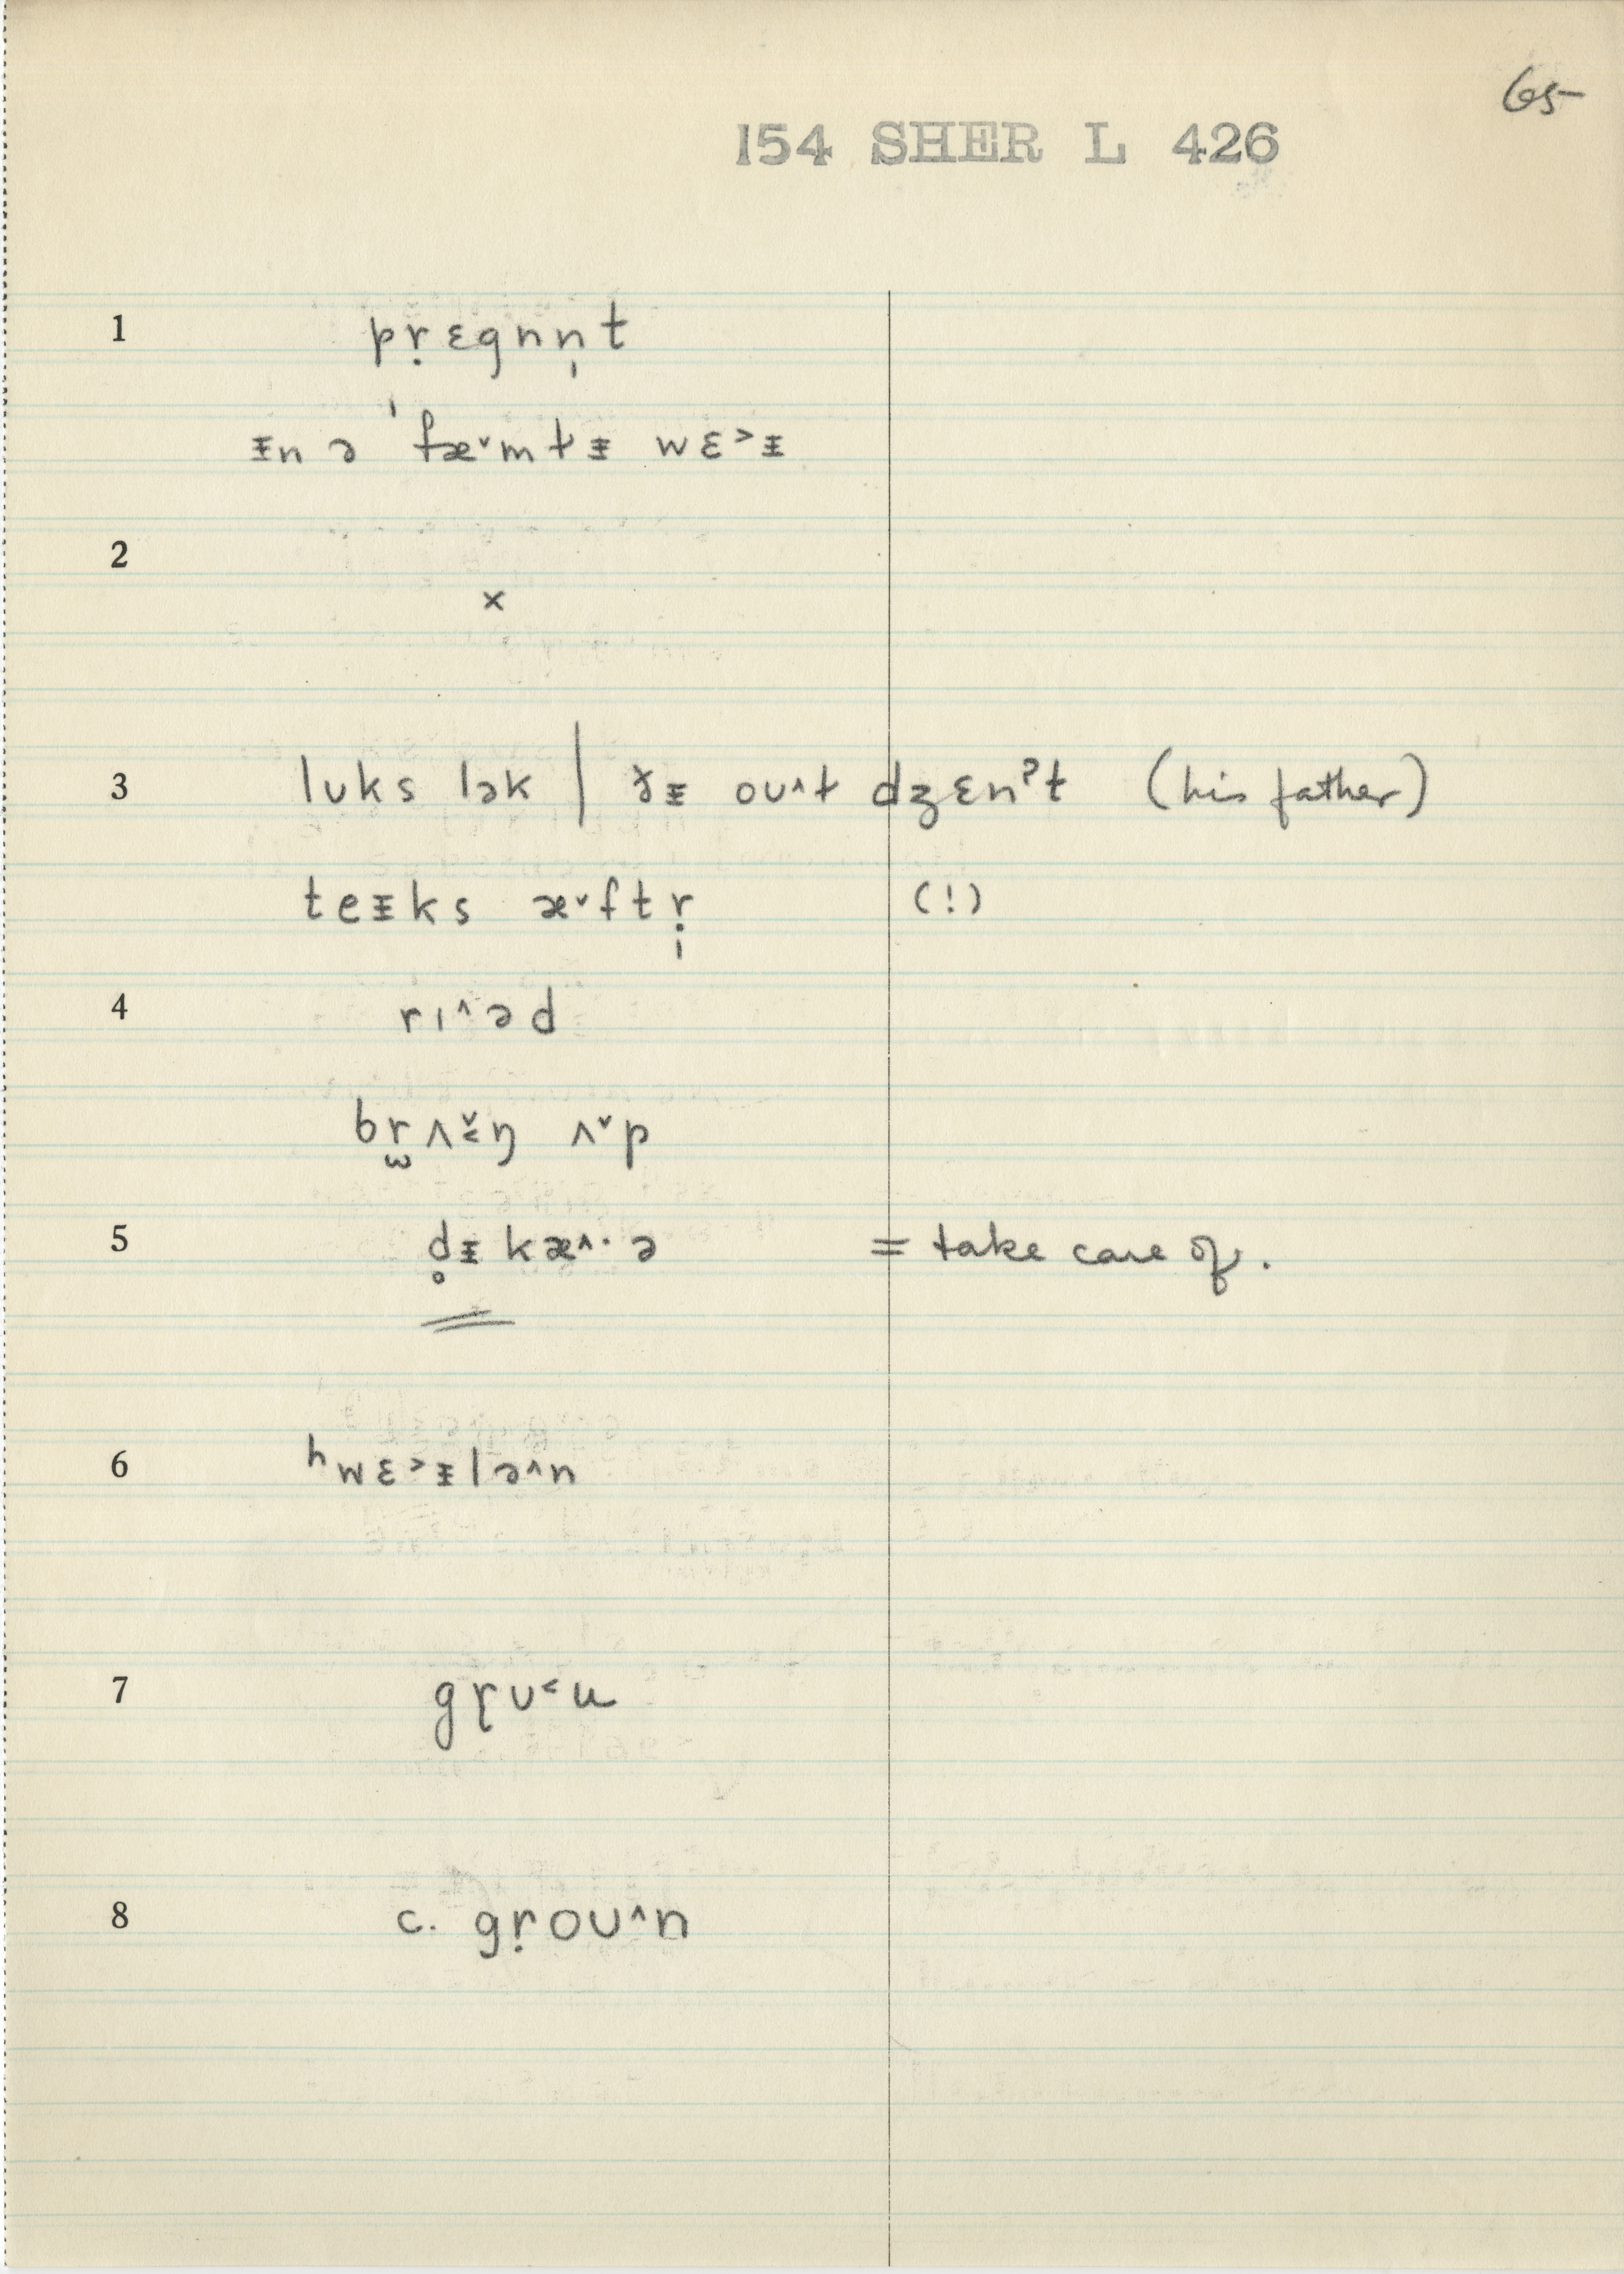 65
154 SHER L 426
1 pṛɛgnn̩t
ᵻn ə ˈfæ˅mɫᵻ wɛ˃ᵻ
2
×
3 lʊks lək | ðᵻ oʊ˄ɫ dʒɛnˀt (his father)
teᵻks æ˅ftṛ̩ (!)
4 rɪ˄əd
br̫ʌɛ̌ŋ ʌ˅p
5 d̥ᵻkæ˄·ə = take care of.
6 ʰwɛ˃ᵻlə˄n
7 gṛʊ˂u
8 c. gṛoʊ˄n